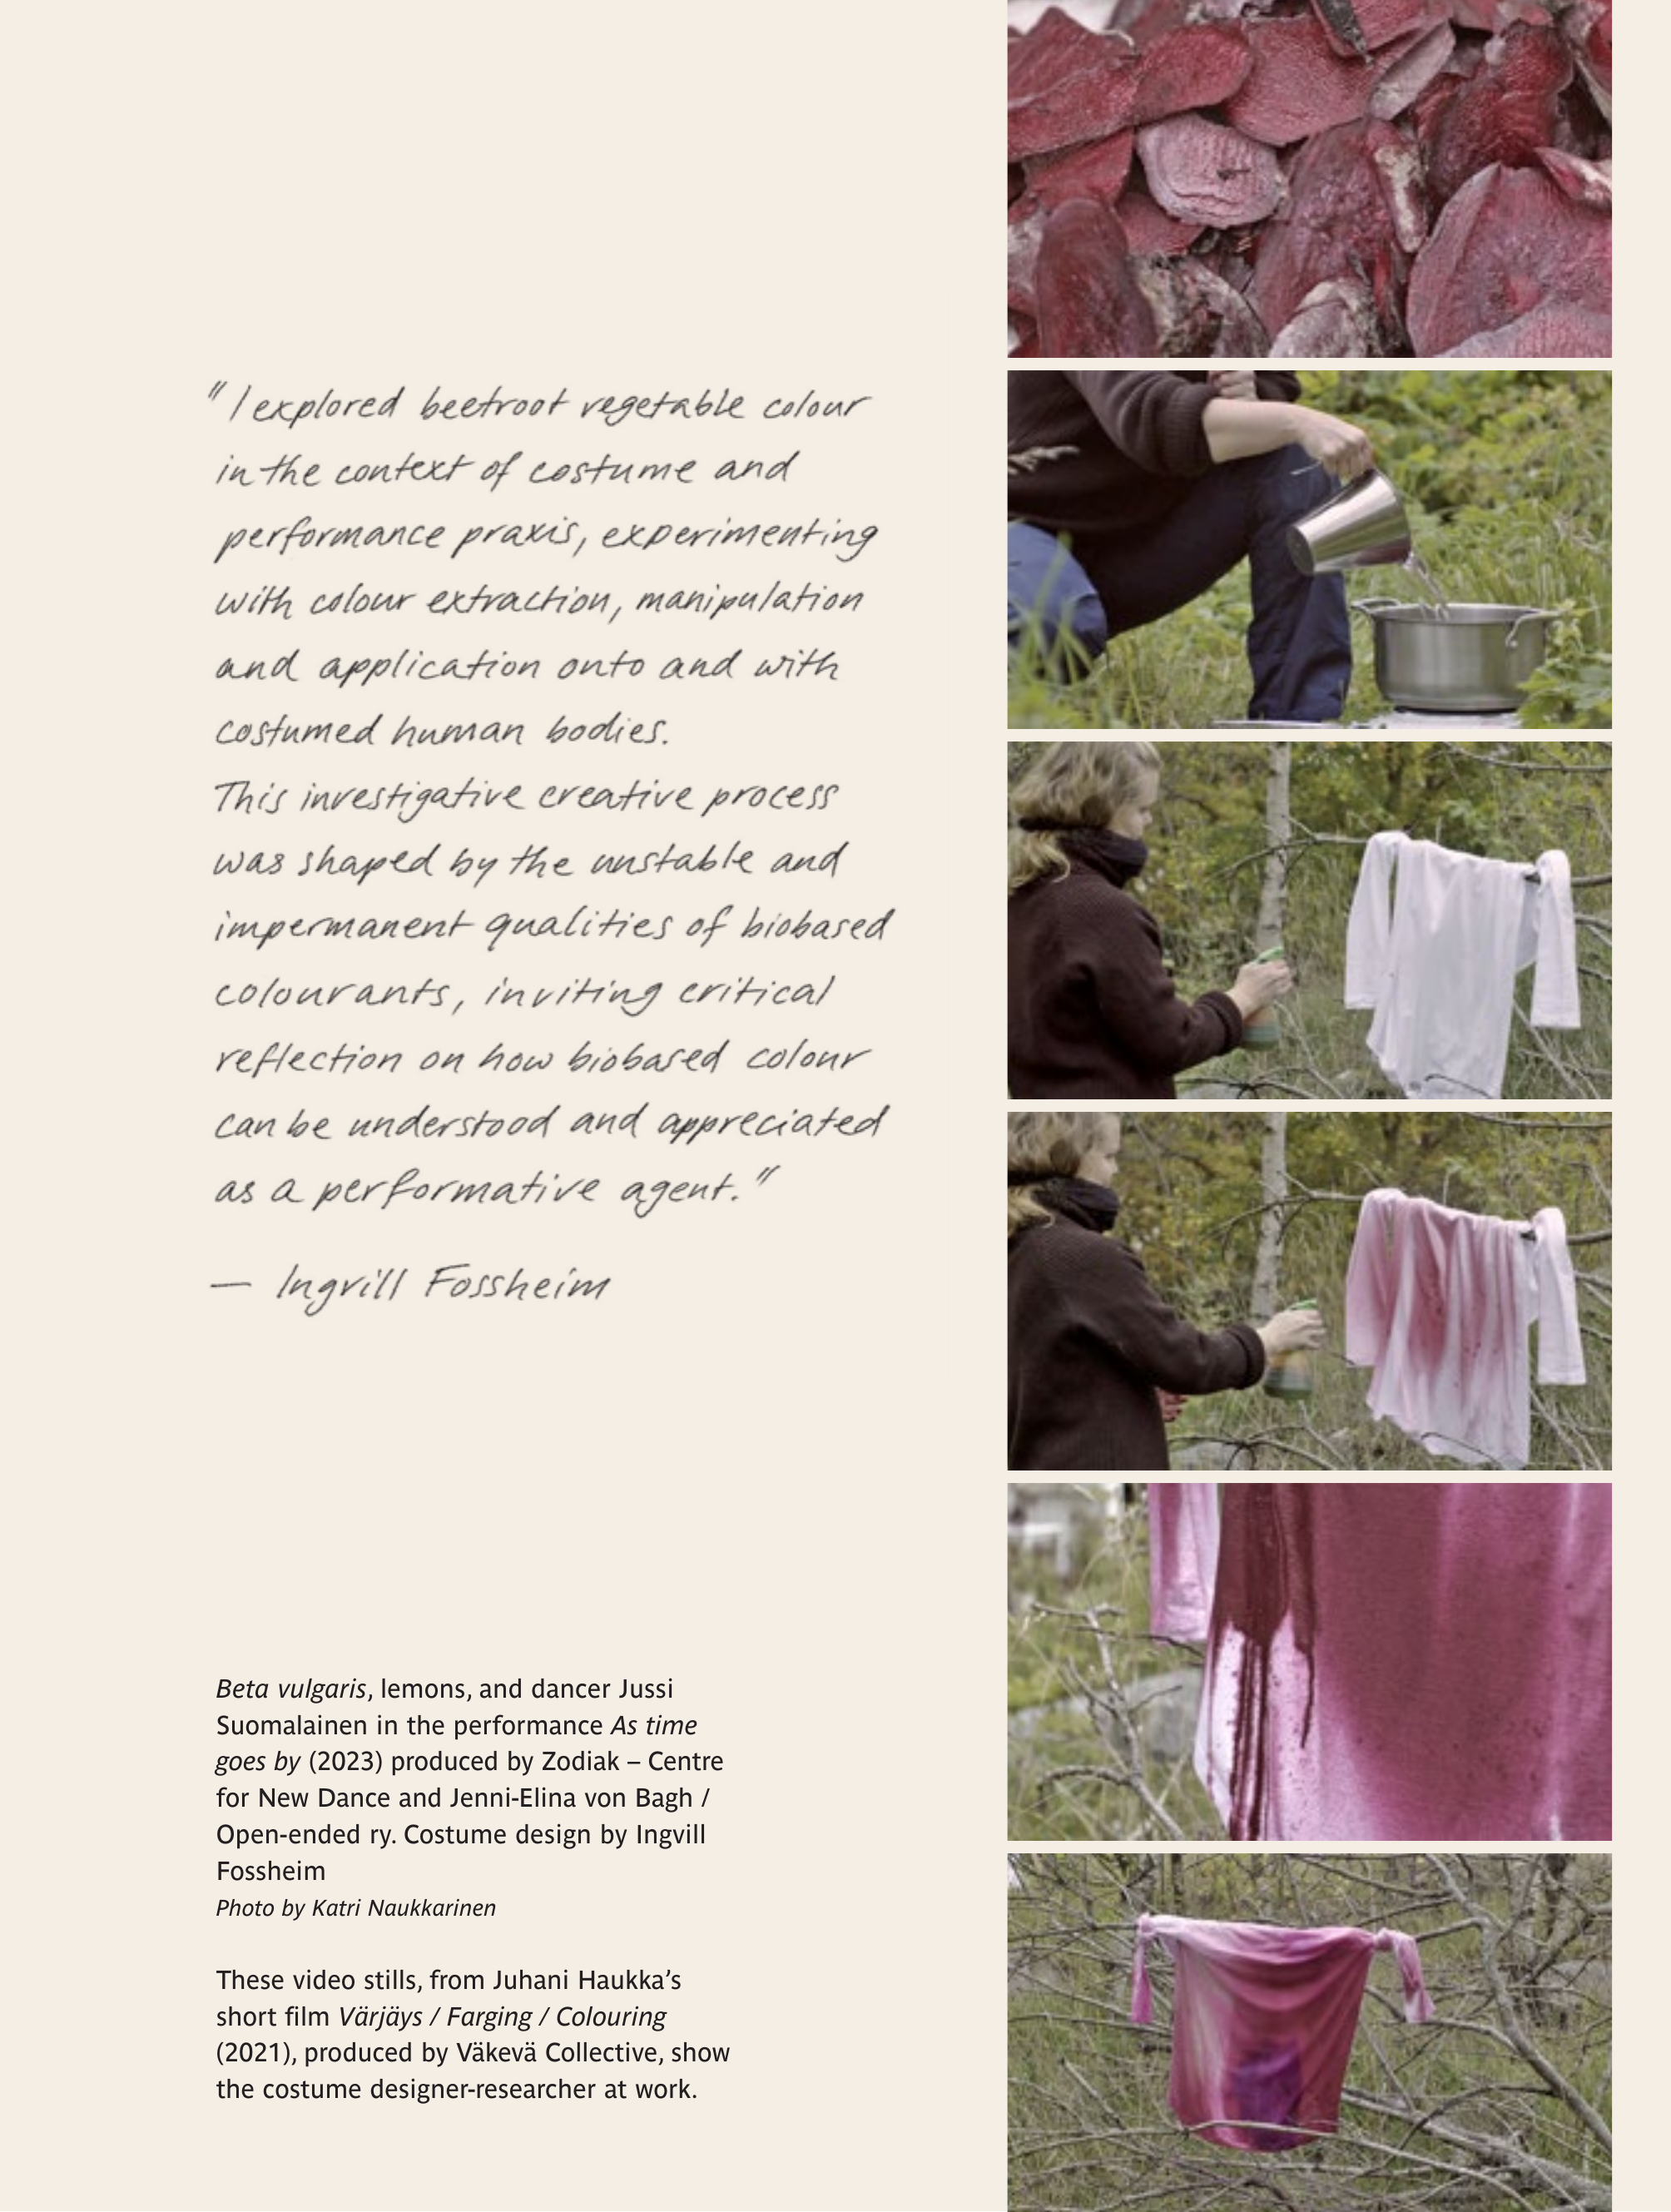 "I explored beetroot vegetable colour
in the context of costume and
performance praxis, experimenting
with colour extraction, manipulation
and application onto and with
costumed human bodies.
This investigative creative process
was shaped by the unstable and
impermanent qualities of biobased
colourants, inviting critical
reflection on how biobased colour
can be understood and appreciated
as a performative agent."
— Ingvill Fossheim
Beta vulgaris, lemons, and dancer Jussi
Suomalainen in the performance As time
goes by (2023) produced by Zodiak – Centre
for New Dance and Jenni-Elina von Bagh /
Open-ended ry. Costume design by Ingvill
Fossheim
Photo by Katri Naukkarinen
These video stills, from Juhani Haukka’s
short film Värjäys / Farging / Colouring
(2021), produced by Väkevä Collective, show
the costume designer-researcher at work.